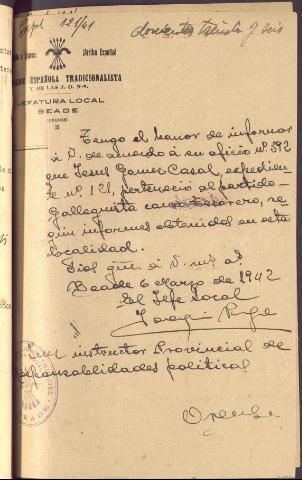 doscientos treinta y seis
121/41
¡Arriba España!
ESPAÑOLA TRADICIONALISTA
Y DE LAS J. O. N-S.
JEFATURA LOCAL
BEADE
(ORENSE)
Tengo el honor de informar
á V. de acuerdo á su oficio nº. 392
que Jesus Gomez Casal, expedien-
te nº. 121, pertenecio al partido
Galleguista como tesorero, se-
gún informes obtenidos en esta
localidad.
Dios gue. á V. m. a.
Beade 6 Marzo de 1942
El Jefe Local
instructor Provincial de
responsabilidades politicas
Orense